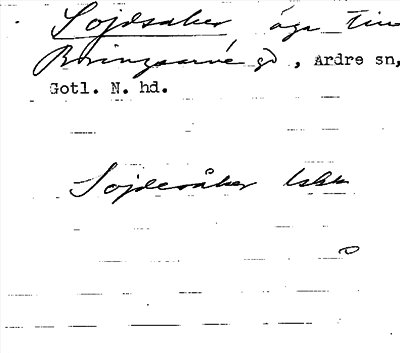 Sojdsaker, äga till
Buringaarve gd, Ardre sn,
Gotl. N. hd.
Sojdesåker